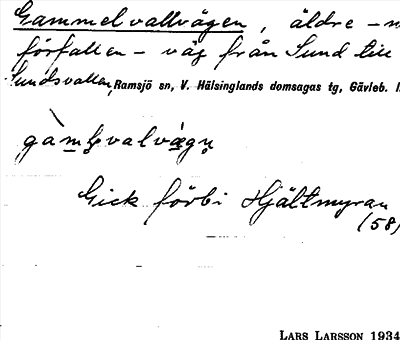 Gammelvallvägen, äldre – n
förfallen – väg från Sund till
Sundsvallen, Ramsjö sn, V. Hälsinglands domsagas tg, Gävleb. l
Gick förbi Hjältmyran
(58)
LARS LARSSON 1934